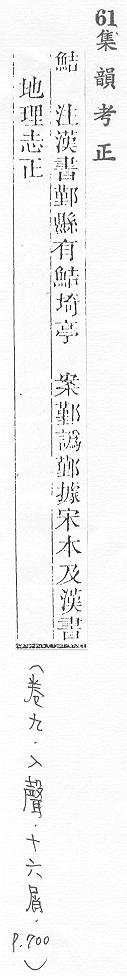 61集韻考正
鮚 注漢書鄞縣有鮚埼亭 案鄞譌據宋本及漢書
地理志正
(卷九.入聲.十六屑.P.700)